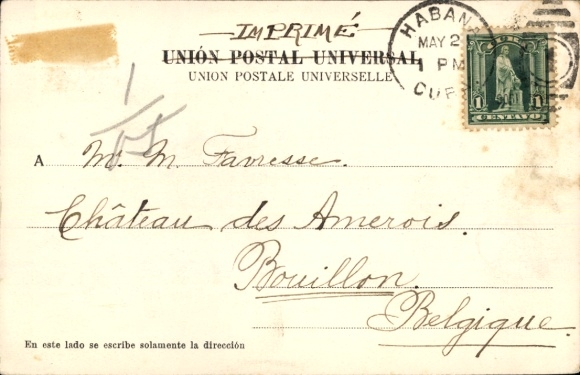 IMPRIMÉ
UNIÓN POSTAL UNIVERSAL
UNION POSTALE UNIVERSELLE
HABANA
MAY 2
1 PM
CUBA
1 CENTAVO 1
A M. M. Favresse.
Château des Amerois.
Bouillon.
Belgique.
En este lado se escribe solamente la dirección